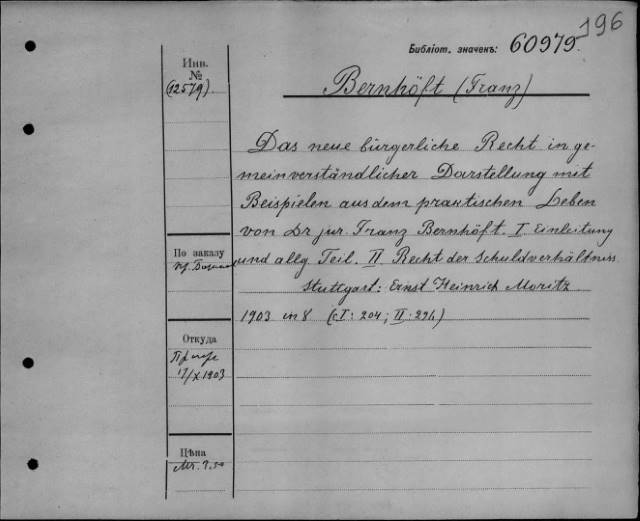 196
Библіот. значекъ: 60979.
Инв.
№
(12579)
Bernhöft (Franz)
Das neue bürgerliche Recht in ge-
meinverständlicher Darstellung mit
Beispielen aus dem praktischen Leben
von Dr jur. Franz Bernhöft. I Einleitung
und allg Teil. II Recht der Schuldverhältnisse
Stuttgart: Ernst Heinrich Moritz
1903 in 8 (cI: 204; II: 294)
По заказу
Откуда
17/X 1903
Цѣна